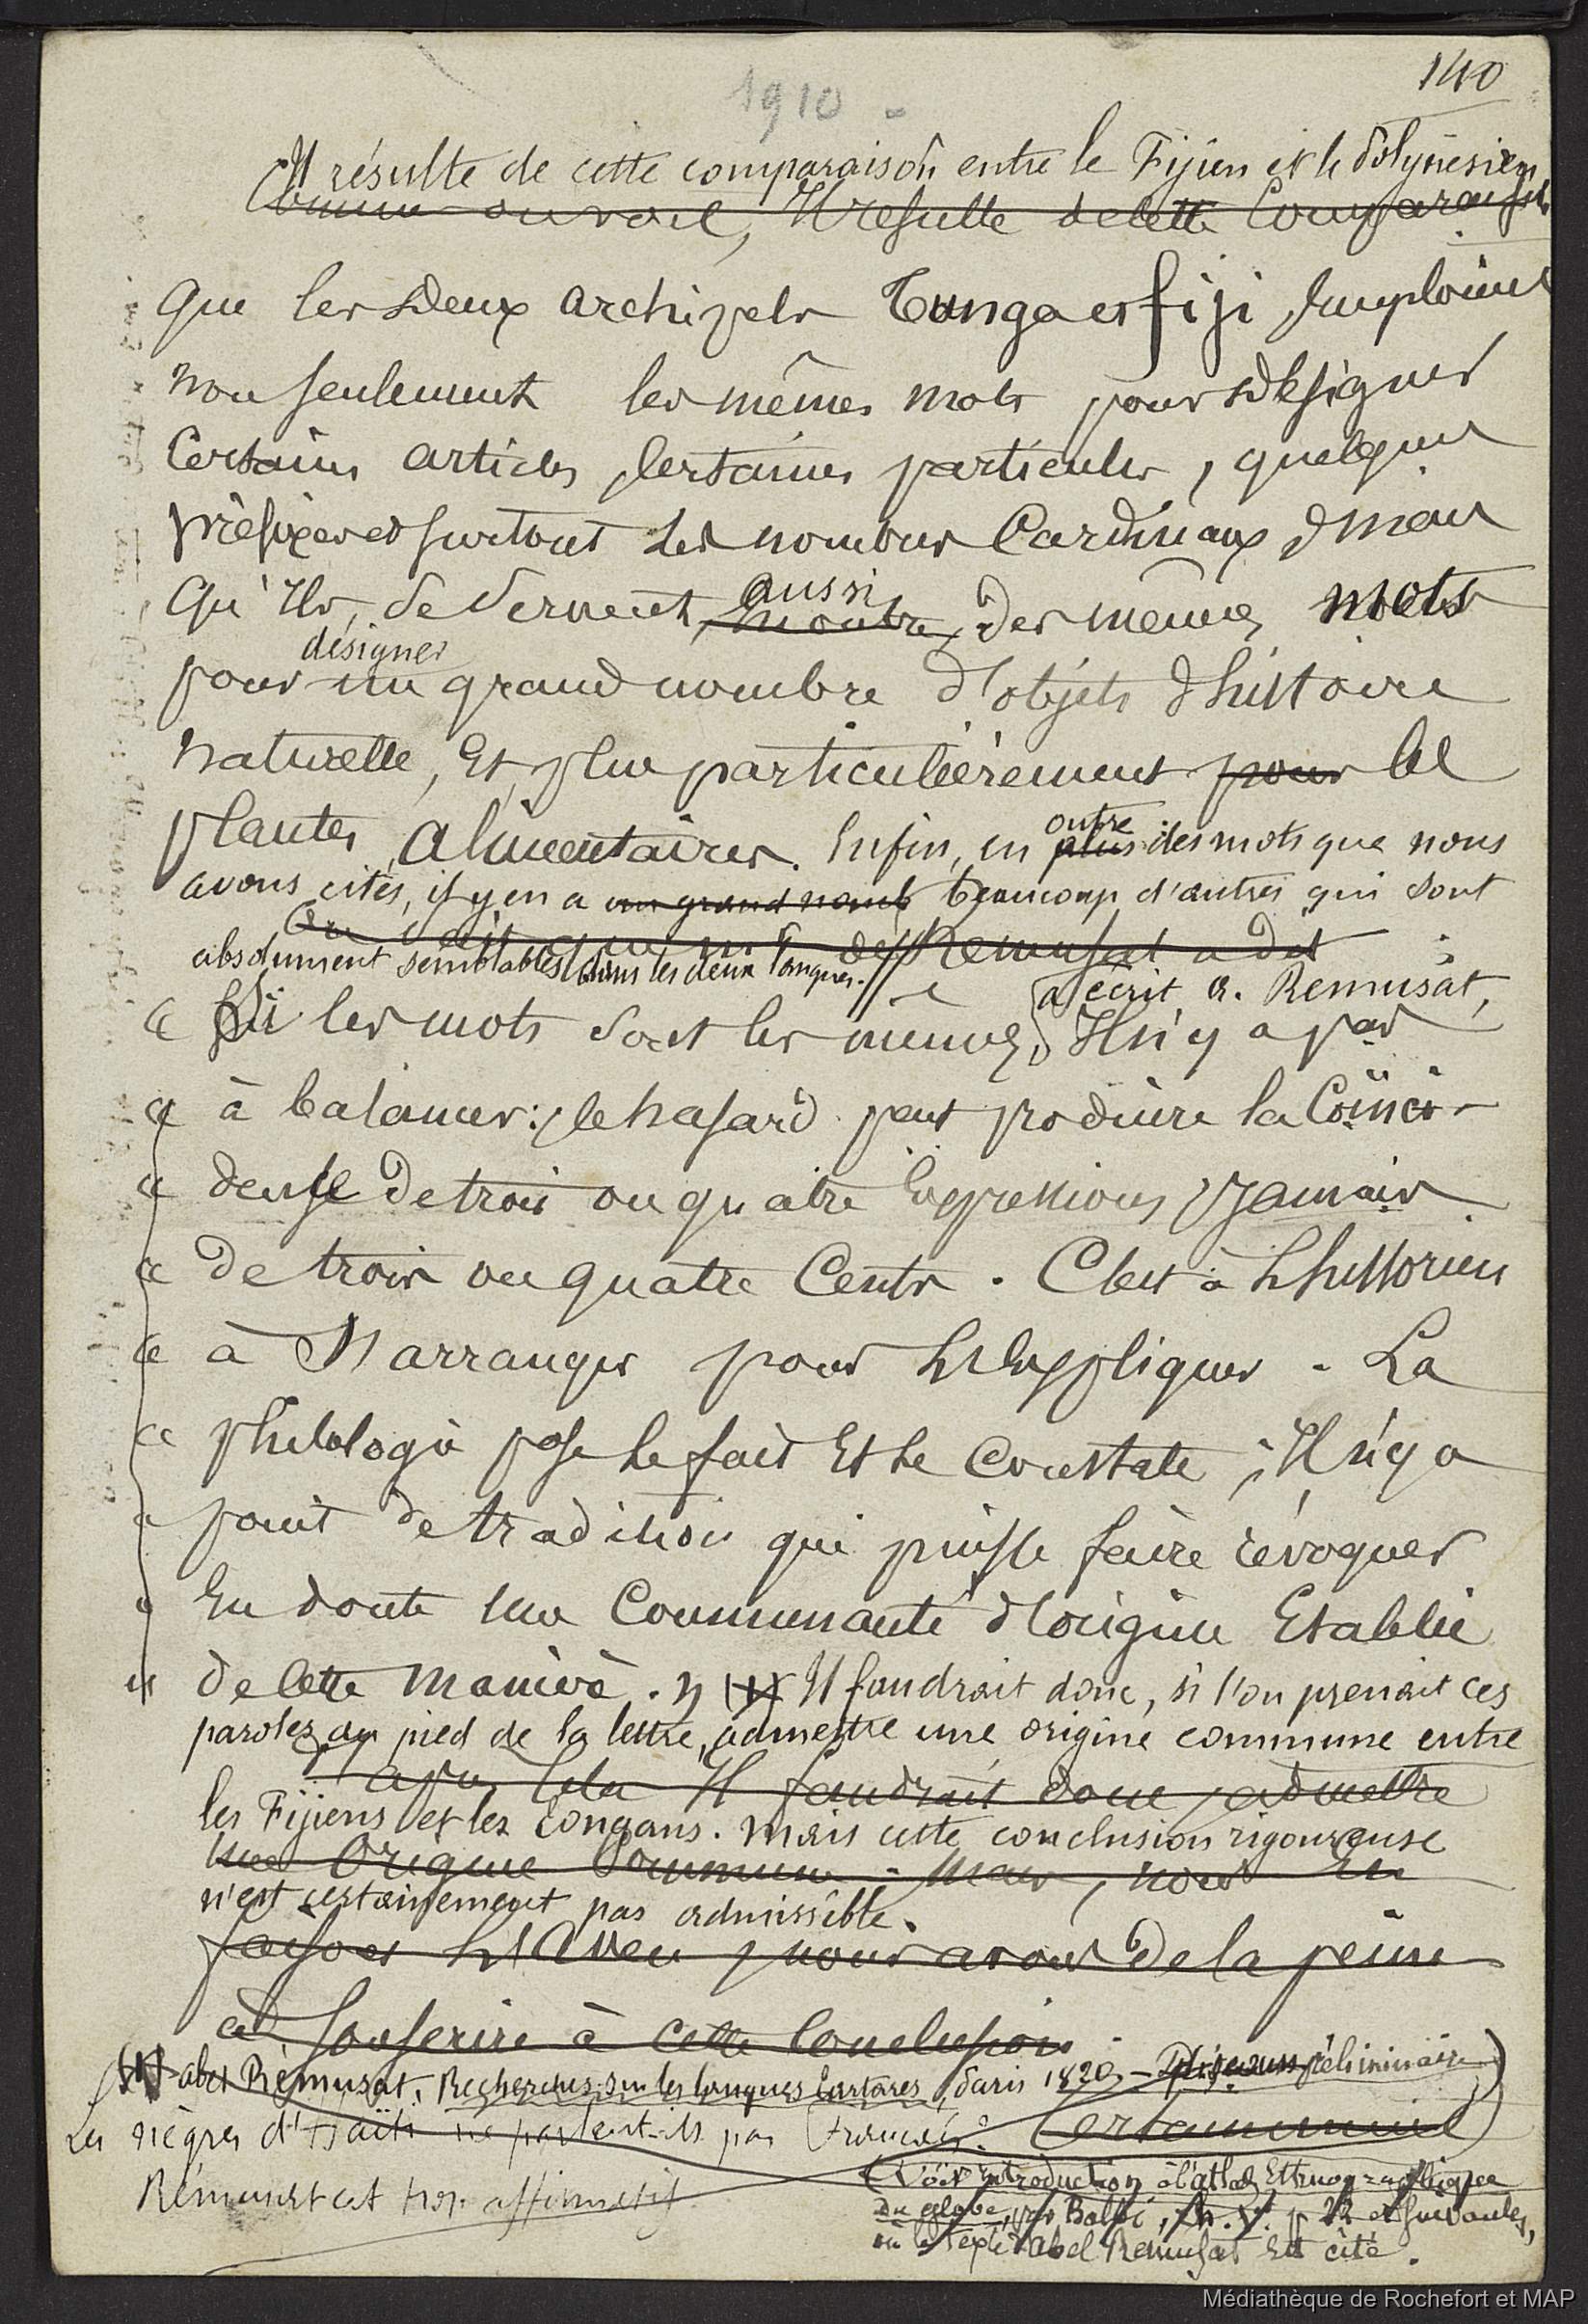 140
1910 -
Il résulte de cette comparaison entre le Fijien et le Polynésien,
Comme on voit, Il résulte de cette Comparaison
que les Deux archipels Tunga et fiji, Emploient
non seulement les mêmes mots pour désigner
Certains articles, Certaines particules, quelques
préfixes et surtout les nombres Cardinaux, mais
qu'Ils se servent, En outre, des mêmes mots
aussi
désigner
pour un grand nombre d'objets d'histoire
naturelle, Et, plus particulièrement pour les
plantes alimentaires. Enfin, en plus des mots que nous
outre
avons cités, il y en a un grand nomb beaucoup d'autres qui sont
Remusat a dit
absolument semblables dans les deux langues.//
a écrit a. Remusat,
« Si les mots sont les mêmes, Il n'y a pas
« à balancer : le hasard peut produire la Coïnci-
« dense de trois ou quatre Expressions, Jamais
« de trois ou quatre Cents. C'est à L'historien
« à S'arranger pour L'Expliquer - La
« philologie pose le fait Et le Constate ; Il n'y a
« point de tradition qui puisse faire révoquer
« En doute une Communauté d'origine Etablie
« de Cette manière. » (1) Il faudrait donc, si l'on prenait ces
paroles au pied de la lettre, admettre une origine commune entre
Il faudrait donc admettre
les Fijiens et les Tongans. Mais cette conclusion rigoureuse
Une Origine Commune - mais, nous En
n'est certainement pas admissible.
faisons L'Aveu, nous avons de la peine
à Souscrire à cette Conclusion
(1) abel Rémusat, Recherches sur les langues tartares, Paris 1820, - Discours préliminaire)
Les nègres d'Haïti ne parlent-ils pas Français? Certainement
Rémusat est trop affirmatif.
(Voir introduction à l'atlas Ethnographique
du globe, par Balbi, p 22 et suivantes,
où le texte d'Abel Remusat Est cité.
Médiathèque de Rochefort et MAP